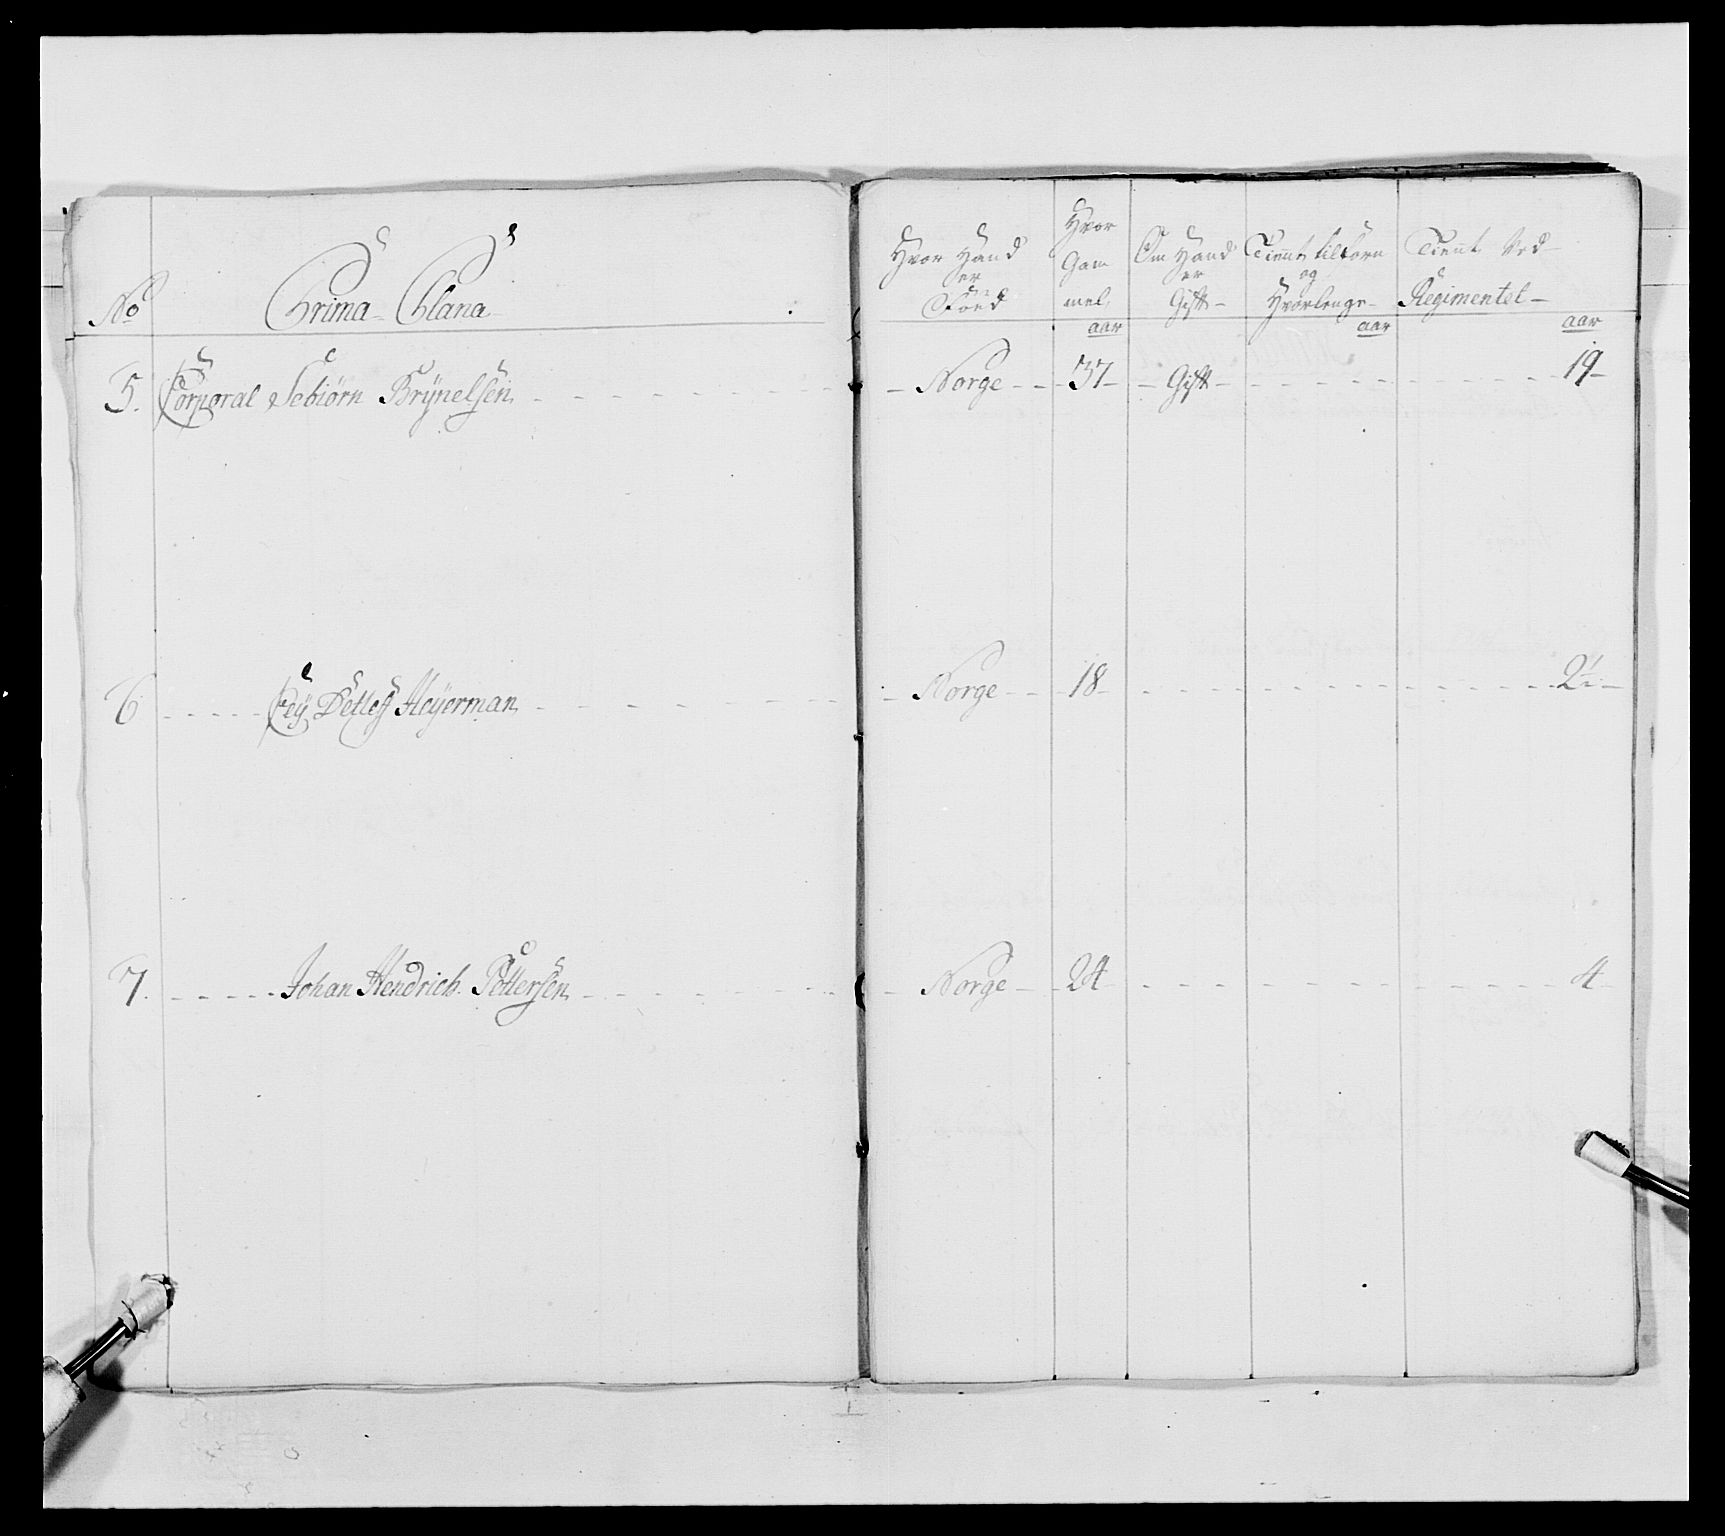 No
Prima Plana
Hvor Hand
er
Föed
Hvor
Gam
mel
aar
Om Hand
er
Gift
Tient tilforn
og
Hvorlenge
aar
Tient Ved
Regimentet
aar
5. Corporal Sebiörn Brÿnelsen Norge 37 Gift 19
6 Heÿerman Norge 18 2½
7. Johan Hendrich Pettersen Norge 24 4